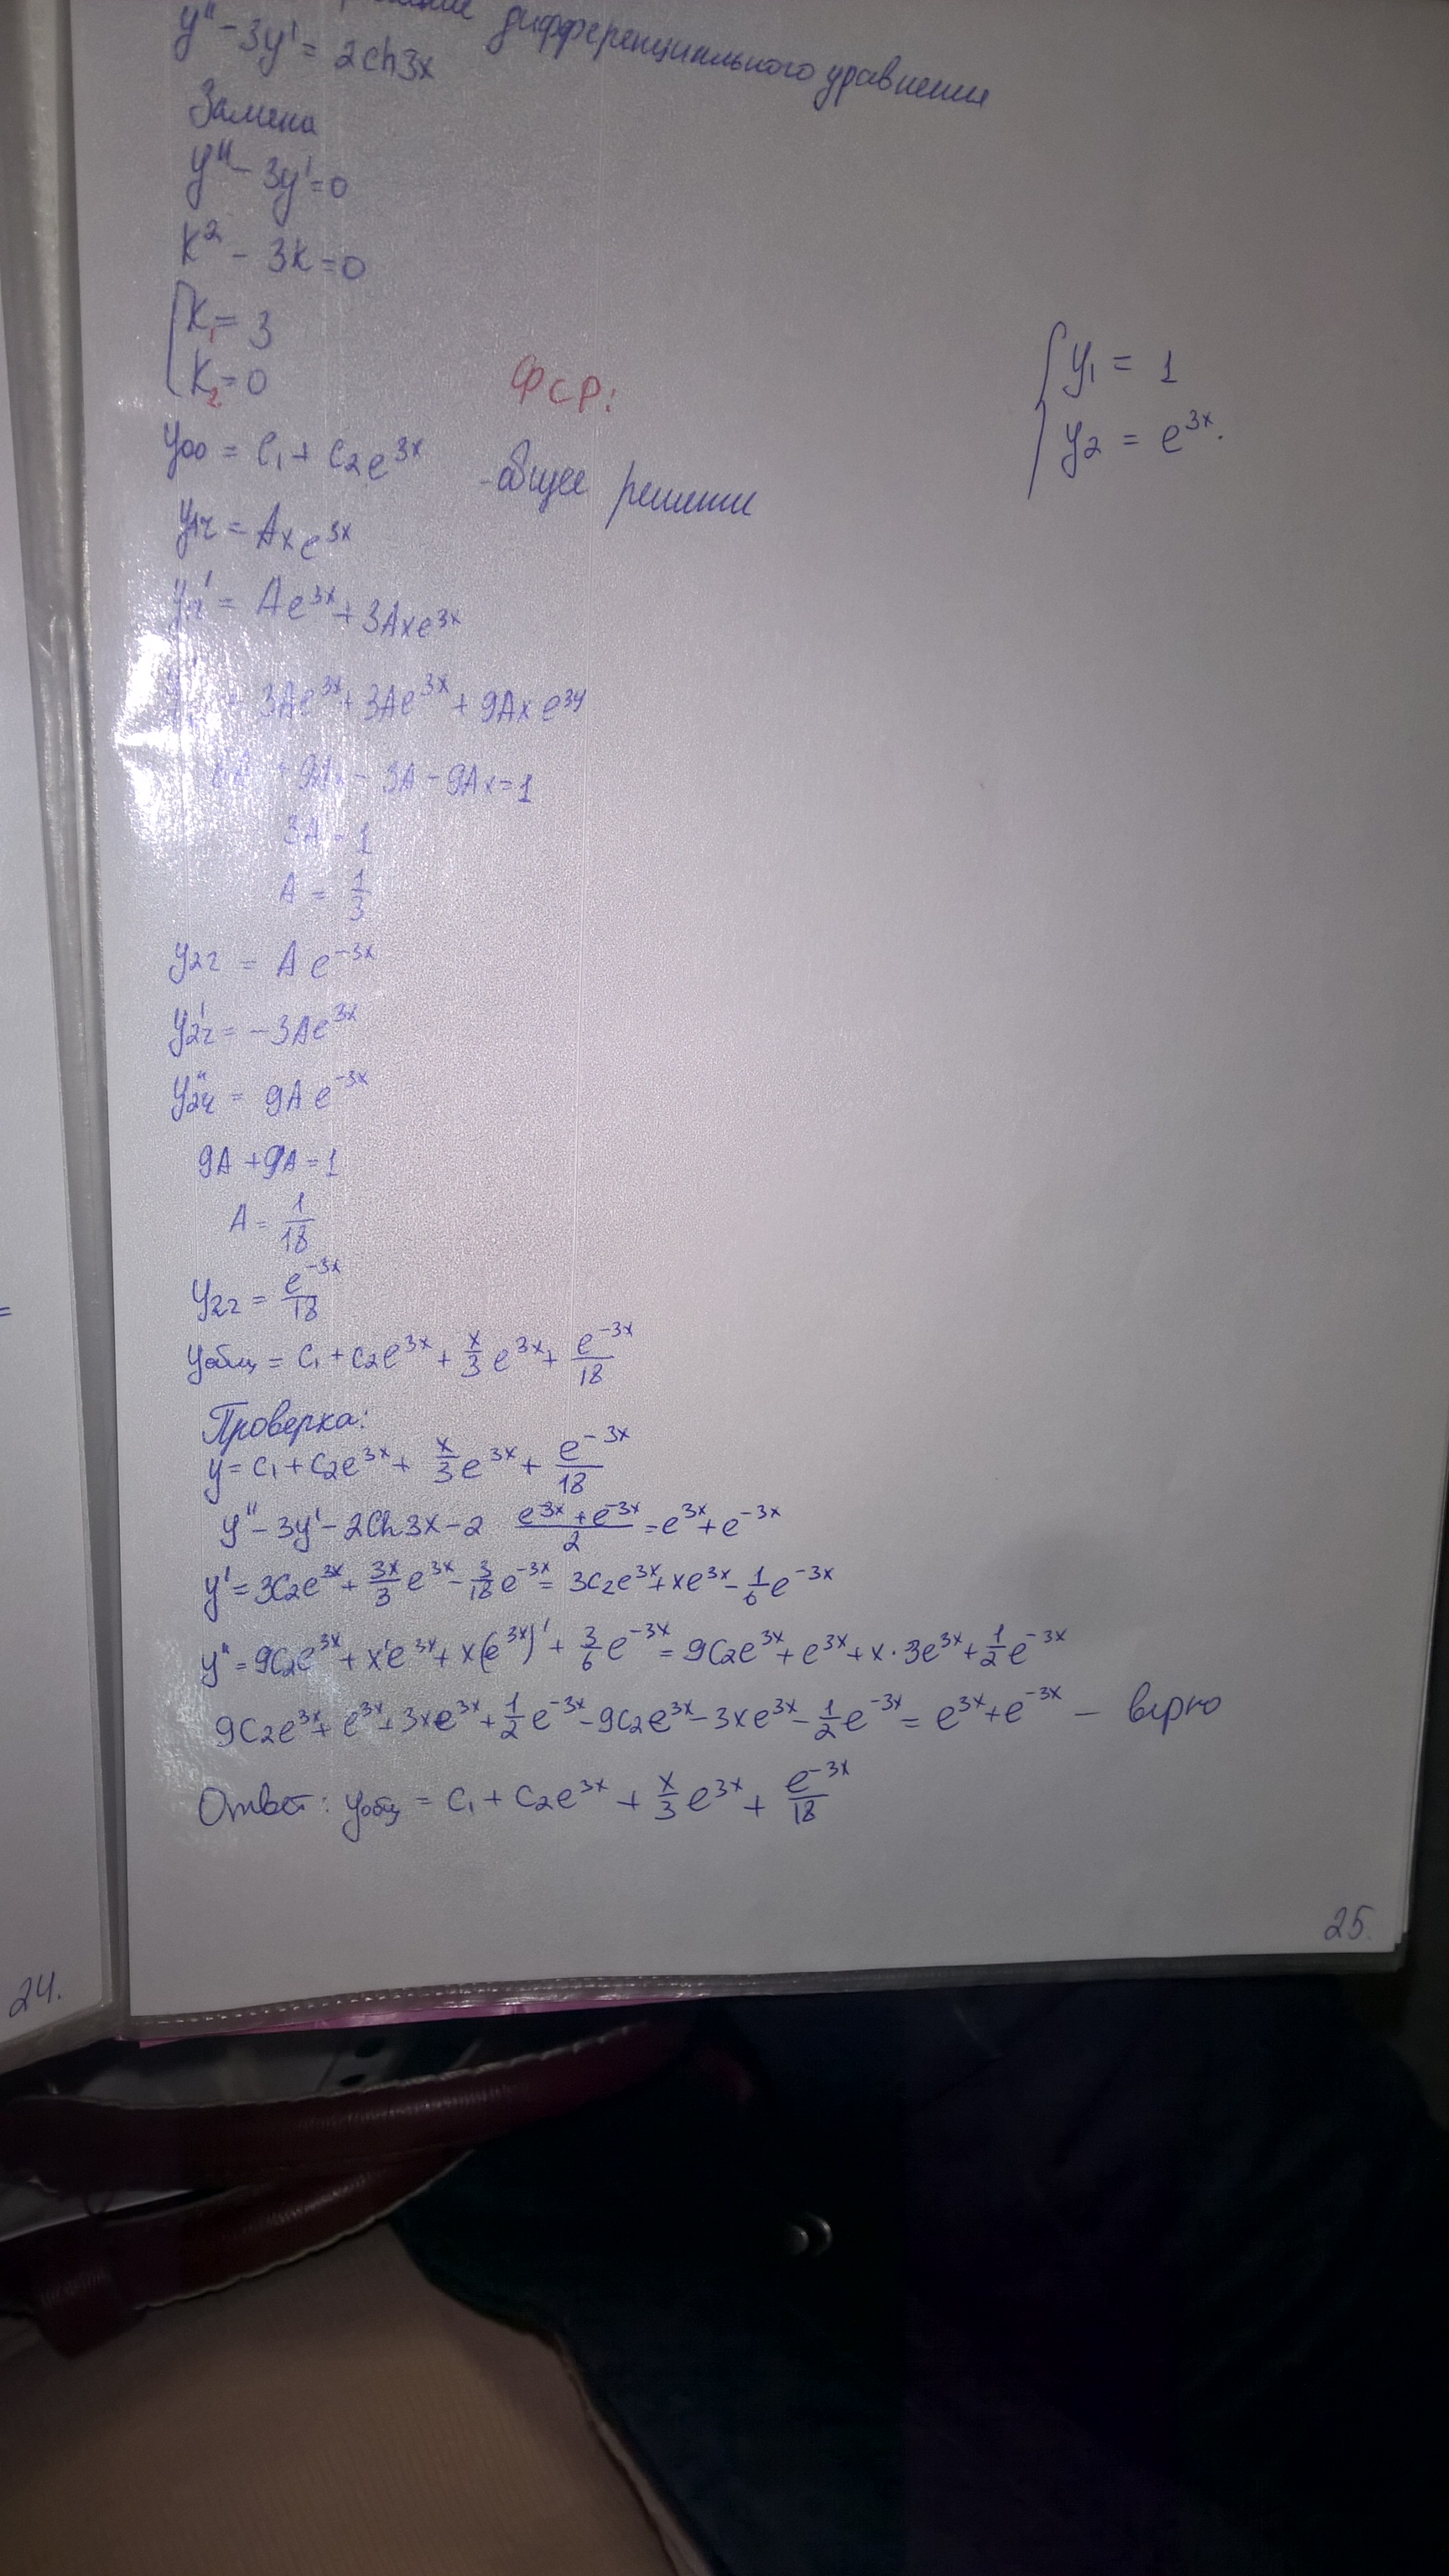 дифференциального уравнения
y'' - 3y' = 2ch3x
Замена
y'' - 3y' = 0
k² - 3k = 0
[ k₁ = 3
k₂ = 0
ФСР:
{ y₁ = 1
y₂ = e^{3x}.
yоо = C₁ + C₂e^{3x} - общее решение
y₁ч = Axe^{3x}
y₁ч' = Ae^{3x} + 3Axe^{3x}
= 3Ae^{3x} + 3Ae^{3x} + 9Axe^{3y}
- 3A - 9Ax = 1
3A = 1
A = 1/3
y₂ч = Ae^{-3x}
y₂ч' = -3Ae^{3x}
y₂ч'' = 9Ae^{-3x}
9A + 9A = 1
A = 1/18
y₂ч = e^{-3x}/18
yобщ = C₁ + C₂e^{3x} + x/3 e^{3x} + e^{-3x}/18
Проверка:
y = C₁ + C₂e^{3x} + x/3 e^{3x} + e^{-3x}/18
y'' - 3y' - 2Ch3x - 2 (e^{3x} + e^{-3x})/2 = e^{3x} + e^{-3x}
y' = 3C₂e^{3x} + 3x/3 e^{3x} - 3/18 e^{-3x} = 3C₂e^{3x} + xe^{3x} - 1/6 e^{-3x}
y'' = 9C₂e^{3x} + x'e^{3x} + x(e^{3x})' + 3/6 e^{-3x} = 9C₂e^{3x} + e^{3x} + x·3e^{3x} + 1/2 e^{-3x}
9C₂e^{3x} + e^{3x} + 3xe^{3x} + 1/2 e^{-3x} - 9C₂e^{3x} - 3xe^{3x} - 1/2 e^{-3x} = e^{3x} + e^{-3x} - вірно
Ответ: yобщ = C₁ + C₂e^{3x} + x/3 e^{3x} + e^{-3x}/18
25.
=
24.